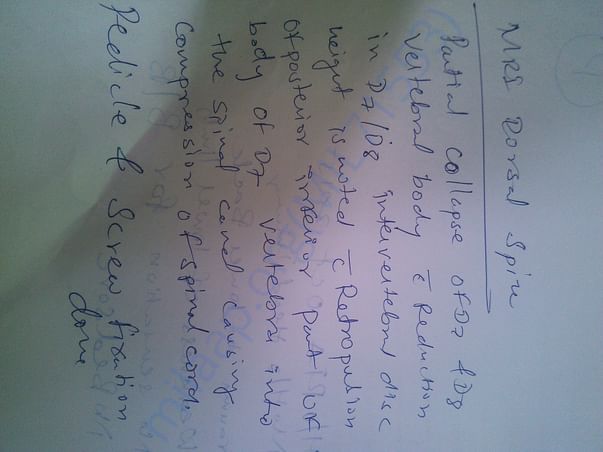 MRI Dorsal Spine
Partial collapse of D7 & D8
vertebral body c̄ Reduction
in D7/D8 intervertebral disc
height is noted c̄ Retropulsion
of posterior inferior part of
body of D7 vertebra into
the spinal canal causing
compression of spinal cord.
Pedicle & Screw fixation
done